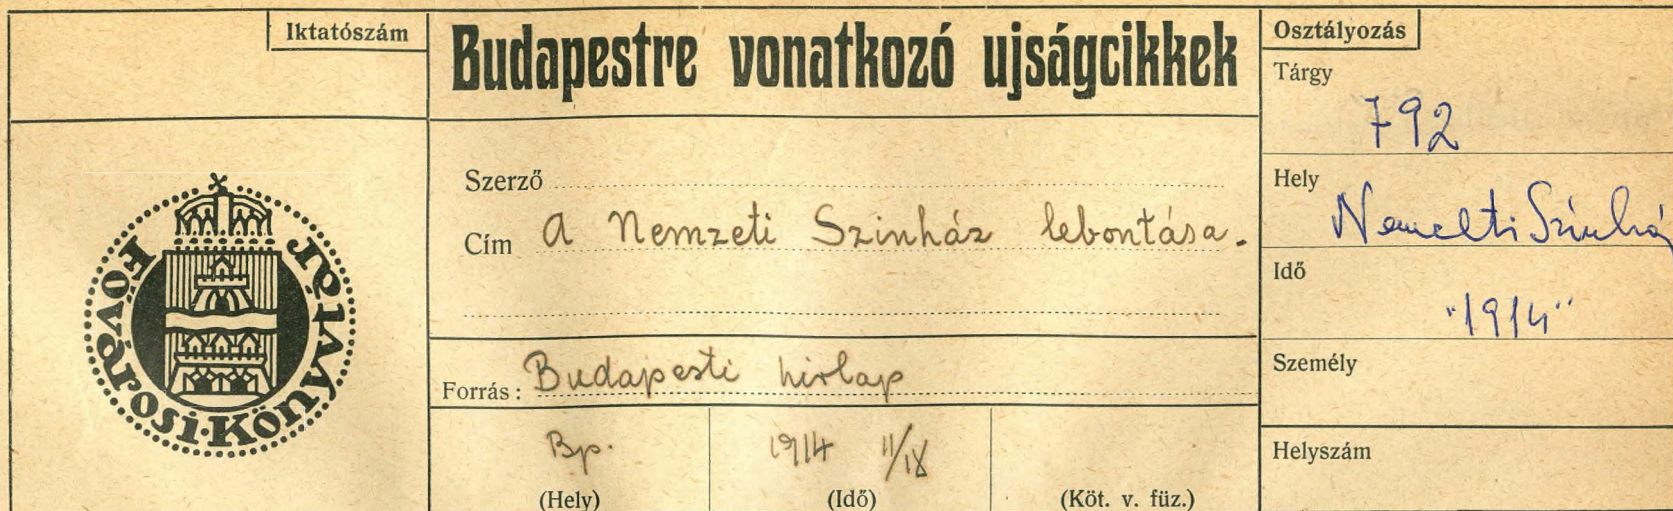 Iktatószám
Fővárosi·Könyvtár
Budapestre vonatkozó ujságcikkek
Szerző
Cím A Nemzeti Szinház lebontása.
Forrás: Budapesti hirlap
Bp. 1914 11/18
(Hely) (Idő) (Köt. v. füz.)
Osztályozás
Tárgy
792
Hely
Nemzeti Szinház
Idő
"1914"
Személy
Helyszám